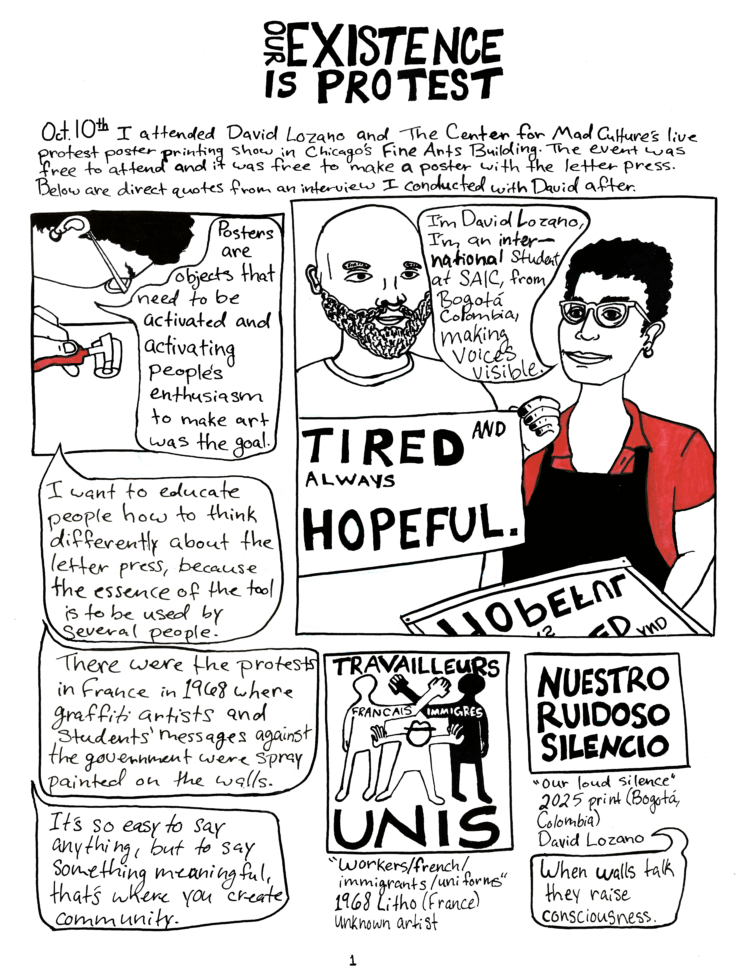 OUR EXISTENCE
IS PROTEST
Oct. 10th I attended David Lozano and The Center for Mad Culture's live
protest poster printing show in Chicago's Fine Arts Building. The event was
free to attend and it was free to make a poster with the letter press.
Below are direct quotes from an interview I conducted with David after.
Posters
are
objects that
need to be
activated and
activating
people's
enthusiasm
to make art
was the goal.
I'm David Lozano,
I'm an inter-
national Student
at SAIC, from
Bogotá
Colombia,
making
voices
visible.
TIRED AND
ALWAYS
HOPEFUL.
I want to educate
people how to think
differently about the
letter press, because
the essence of the tool
is to be used by
several people.
There were the protests
in France in 1968 where
graffiti artists and
Students' messages against
the government were spray
painted on the walls.
It's so easy to say
anything, but to say
something meaningful,
that's where you create
community.
TRAVAILLEURS
FRANCAIS IMMIGRES
UNIS
"Workers/french/
immigrants/uniforms"
1968 Litho (France)
Unknown artist
NUESTRO
RUIDOSO
SILENCIO
"Our loud silence"
2025 print (Bogotá,
Colombia)
David Lozano
When walls talk
they raise
consciousness.
1